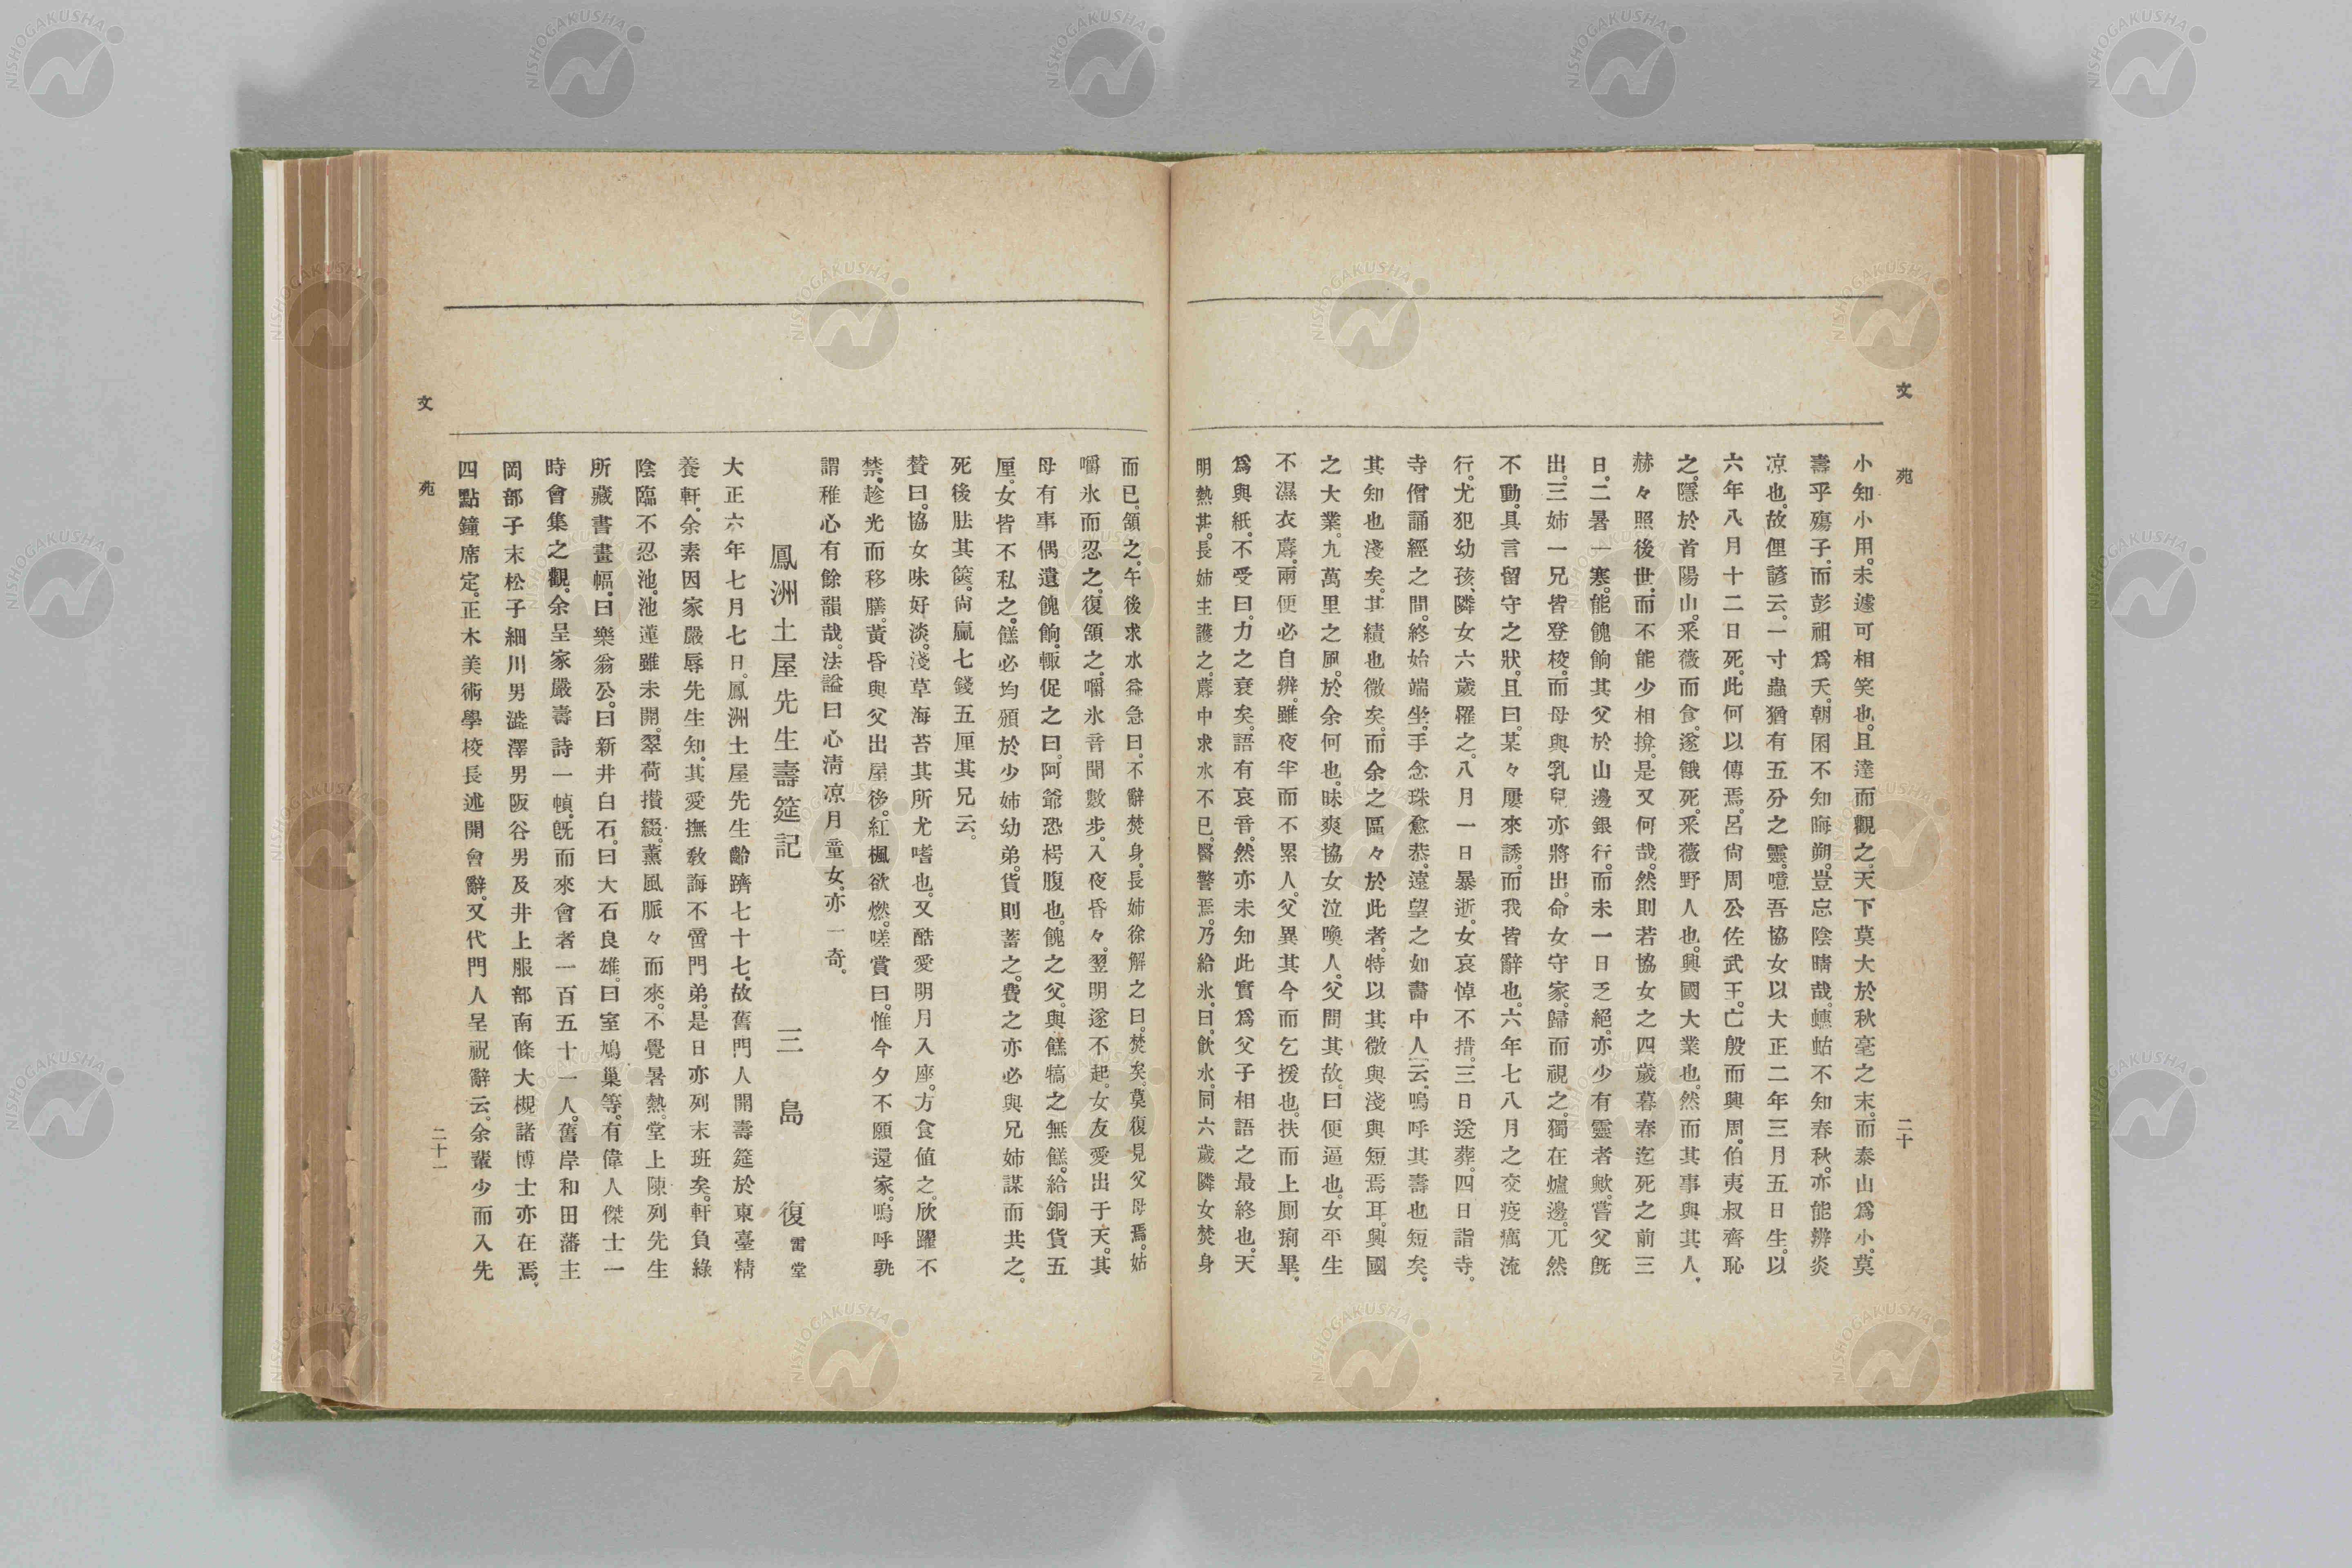 文苑
二十
小知小用。未遽可相笑也。且達而觀之、天下莫大於秋毫之末。而泰山爲小。莫
壽乎殤子。而彭祖爲夭。朝困不知晦朔。豈忘陰晴哉。蟪蛄不知春秋。亦能辨炎
凉也。故俚諺云。一寸蟲猶有五分之靈。噫吾協女以大正二年三月五日生。以
六年八月十二日死。此何以傳焉。呂尙周公佐武王。亡殷而興周。伯夷叔齊恥
之。隱於首陽山。采薇而食。遂餓死。采薇野人也。興國大業也。然而其事與其人。
赫々照後世。而不能少相揜。是又何哉。然則若協女之四歲暮春迄死之前三
日。二暑一寒。能餽餉其父於山邊銀行。而未一日乏絕。亦少有靈者歟。嘗父既
出。三姉一兄皆登校。而母與乳兒亦將出。命女守家。歸而視之。獨在爐邊。兀然
不動。具言留守之狀。且曰。某々屢來誘。而我皆辭也。六年七八月之交疫癘流
行。尤犯幼孩、隣女六歲罹之。八月一日暴逝。女哀悼不措。三日送葬。四日詣寺。
寺僧誦經之間。終始端坐。手念珠愈恭。遠望之如畵中人云。嗚呼其壽也短矣。
其知也淺矣。其績也微矣。而余之區々於此者。特以其微與淺與短焉耳。興國
之大業。九萬里之風。於余何也。昧爽協女泣喚人。父問其故。曰便逼也。女平生
不濕衣蓐。兩便必自辨。雖夜半而不累人。父異其今而乞援也。扶而上厠痢畢。
爲與紙。不受曰。力之衰矣。語有哀音。然亦未知此實爲父子相語之最終也。天
明熱甚。長姉主護之。蓐中求水不已。醫警焉。乃給氷。曰。飮水。同六歲隣女焚身
而已。頷之。午後求水益急曰。不辭焚身。長姉徐解之曰。焚矣。莫復見父母焉。姑
嚼氷而忍之。復頷之。嚼氷音聞數步。入夜昏々。翌明遂不起。女友愛出于天。其
母有事偶遺餽餉。輙促之曰。阿爺恐枵腹也。餽之父。與餻犒之無餻。給銅貨五
厘。女皆不私之。餻必均頒於少姉幼弟。貨則蓄之。費之亦必與兄姉謀而共之。
死後胠其篋。尙贏七錢五厘其兄云。
賛曰。協女味好淡。淺草海苔其所尤嗜也。又酷愛明月入座。方食値之。欣躍不
禁。趁光而移膳。黃昏與父出屋後。紅楓欲燃。嗟賞曰。惟今夕不願還家。嗚呼孰
謂稚心有餘韻哉。法謚曰心淸凉月童女。亦一奇。
鳳洲土屋先生壽筵記　三島　復雷堂
大正六年七月七日。鳳洲土屋先生齡躋七十七。故舊門人開壽筵於東臺精
養軒。余素因家嚴辱先生知。其愛撫敎誨不啻門弟。是日亦列末班矣。軒負綠
陰臨不忍池。池蓮雖未開。翠荷攢綴。薫風脈々而來。不覺暑熱。堂上陳列先生
所藏書畫幅。曰樂翁公。曰新井白石。曰大石良雄。曰室鳩巢等。有偉人傑士一
時會集之觀。余呈家嚴壽詩一幀。既而來會者一百五十一人。舊岸和田藩主
岡部子末松子細川男澁澤男阪谷男及井上服部南條大槻諸博士亦在焉。
四點鐘席定。正木美術學校長述開會辭。又代門人呈祝辭云。余輩少而入先
文苑
二十一